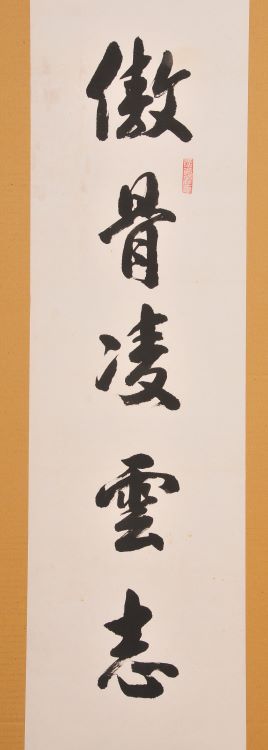 傲骨凌雲志